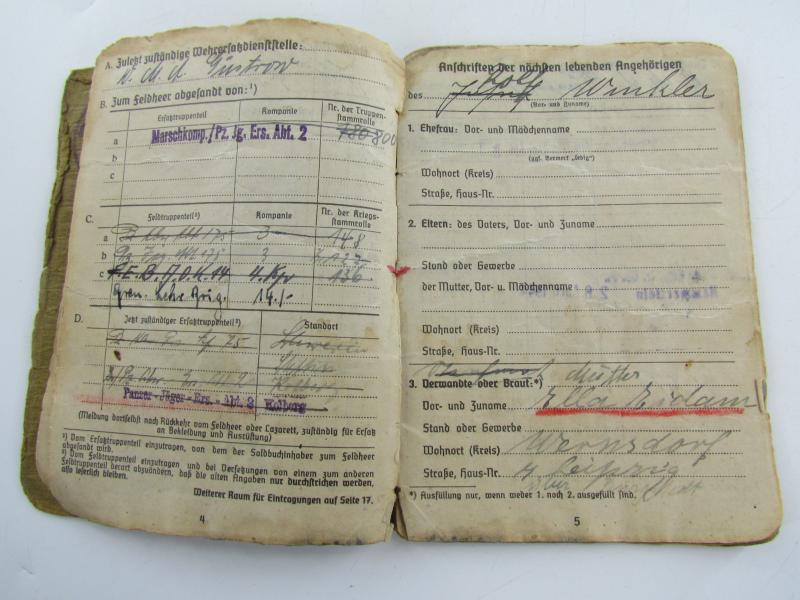 A. Zuletzt zuständige Wehrersatzdienststelle:
W. M. A Güstrow
B. Zum Feldheer abgesandt von:¹)
Ersatztruppenteil Kompanie Nr. der Truppenstammrolle
a Marschkomp./Pz. Jg. Ers. Abt. 2 800
b
c
C. Feldtruppenteil²) Kompanie Nr. der Kriegsstammrolle
a 3 148
b 3
c 4. 136
Gren. Lehr Brig. 14./-
D. Jetzt zuständiger Ersatztruppenteil³) Standort
Schwerin
Kolberg
Panzer-Jäger-Ers.-Abt. 2 Kolberg
(Meldung dortselbst nach Rückkehr vom Feldheer oder Lazarett, zuständig für Ersatz
an Bekleidung und Ausrüstung)
¹) Vom Ersatztruppenteil einzutragen, von dem der Soldbuchinhaber zum Feldheer
abgesandt wird.
²) Vom Feldtruppenteil einzutragen und bei Versetzungen von einem zum anderen
Feldtruppenteil derart abzuändern, daß die alten Angaben nur durchstrichen werden,
also leserlich bleiben.
Weiterer Raum für Eintragungen auf Seite 17.
4
Anschriften der nächsten lebenden Angehörigen
des Winkler
(Vor- und Zuname)
1. Ehefrau: Vor- und Mädchenname
(ggf. Vermerk „ledig")
Wohnort (Kreis)
Straße, Haus-Nr.
2. Eltern: des Vaters, Vor- und Zuname
Stand oder Gewerbe
der Mutter, Vor- u. Mädchenname
Wohnort (Kreis)
Straße, Haus-Nr.
Mutter
3. Verwandte oder Braut:*)
Vor- und Zuname Ella Eidam
Stand oder Gewerbe
Wohnort (Kreis) Wernsdorf
Straße, Haus-Nr. Leipzig
*) Ausfüllung nur, wenn weder 1. noch 2. ausgefüllt sind.
5